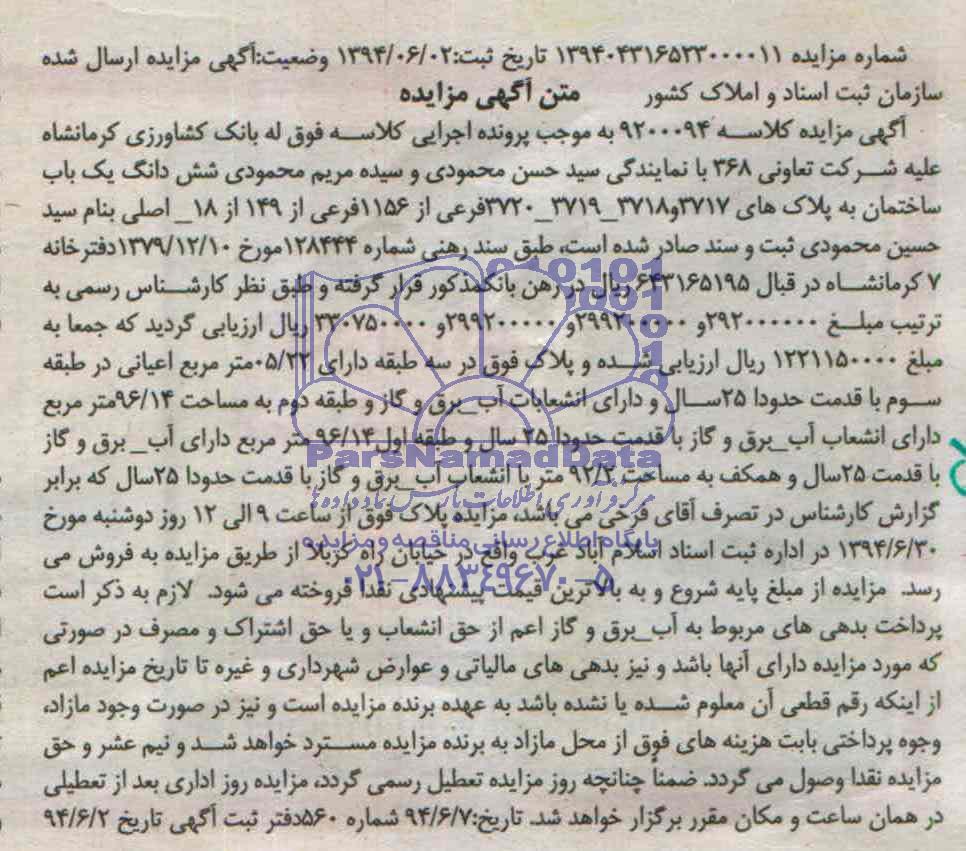 شماره مزایده ۱۳۹۴۰۴۳۱۶۵۲۳۰۰۰۰۱۱ تاریخ ثبت:۱۳۹۴/۰۶/۰۲ وضعیت:آگهی مزایده ارسال شده
سازمان ثبت اسناد و املاک کشور متن آگهی مزایده
آگهی مزایده کلاسه ۹۲۰۰۰۹۴ به موجب پرونده اجرایی کلاسه فوق له بانک کشاورزی کرمانشاه
علیه شرکت تعاونی ۳۶۸ با نمایندگی سید حسن محمودی و سیده مریم محمودی شش دانگ یک باب
ساختمان به پلاک های ۳۷۱۷و۳۷۱۸_۳۷۱۹_۳۷۲۰فرعی از ۱۱۵۶فرعی از ۱۴۹ از ۱۸_ اصلی بنام سید
حسین محمودی ثبت و سند صادر شده است، طبق سند رهنی شماره ۱۲۸۴۴۴مورخ ۱۳۷۹/۱۲/۱۰دفترخانه
۷ کرمانشاه در قبال ۶۴۳۱۶۵۱۹۵ ریال در رهن بانکمذکور قرار گرفته و طبق نظر کارشناس رسمی به
ترتیب مبلغ ۲۹۲۰۰۰۰۰۰و ۲۹۹۲۰۰۰۰۰و ۲۹۹۲۰۰۰۰۰و ۳۳۰۷۵۰۰۰۰ ریال ارزیابی گردید که جمعا به
مبلغ ۱۲۲۱۱۵۰۰۰۰ ریال ارزیابی شده و پلاک فوق در سه طبقه دارای ۰۵/۲۲متر مربع اعیانی در طبقه
سوم با قدمت حدودا ۲۵سال و دارای انشعابات آب_برق و گاز و طبقه دوم به مساحت ۹۶/۱۴متر مربع
دارای انشعاب آب_برق و گاز با قدمت حدودا ۲۵ سال و طبقه اول۹۶/۱۴ متر مربع دارای آب_ برق و گاز
با قدمت ۲۵سال و همکف به مساحت ۹۲/۲ متر با انشعاب آب_برق و گاز با قدمت حدودا ۲۵سال که برابر
گزارش کارشناس در تصرف آقای فرخی می باشد، مزایده پلاک فوق از ساعت ۹ الی ۱۲ روز دوشنبه مورخ
۱۳۹۴/۶/۳۰ در اداره ثبت اسناد اسلام آباد غرب واقع در خیابان راه کربلا از طریق مزایده به فروش می
رسد. مزایده از مبلغ پایه شروع و به بالاترین قیمت پیشنهادی نقدا فروخته می شود. لازم به ذکر است
پرداخت بدهی های مربوط به آب_برق و گاز اعم از حق انشعاب و یا حق اشتراک و مصرف در صورتی
که مورد مزایده دارای آنها باشد و نیز بدهی های مالیاتی و عوارض شهرداری و غیره تا تاریخ مزایده اعم
از اینکه رقم قطعی آن معلوم شده یا نشده باشد به عهده برنده مزایده است و نیز در صورت وجود مازاد،
وجوه پرداختی بابت هزینه های فوق از محل مازاد به برنده مزایده مسترد خواهد شد و نیم عشر و حق
مزایده نقدا وصول می گردد. ضمناً چنانچه روز مزایده تعطیل رسمی گردد، مزایده روز اداری بعد از تعطیلی
در همان ساعت و مکان مقرر برگزار خواهد شد. تاریخ:۹۴/۶/۷ شماره ۵۶۰دفتر ثبت آگهی تاریخ ۹۴/۶/۲
ParsNamadData
مرکز فرآوری اطلاعات پارس نماد داده ها
پایگاه اطلاع رسانی مناقصه و مزایده
۰۲۱-۸۸۳۴۹۶۷۰-۵